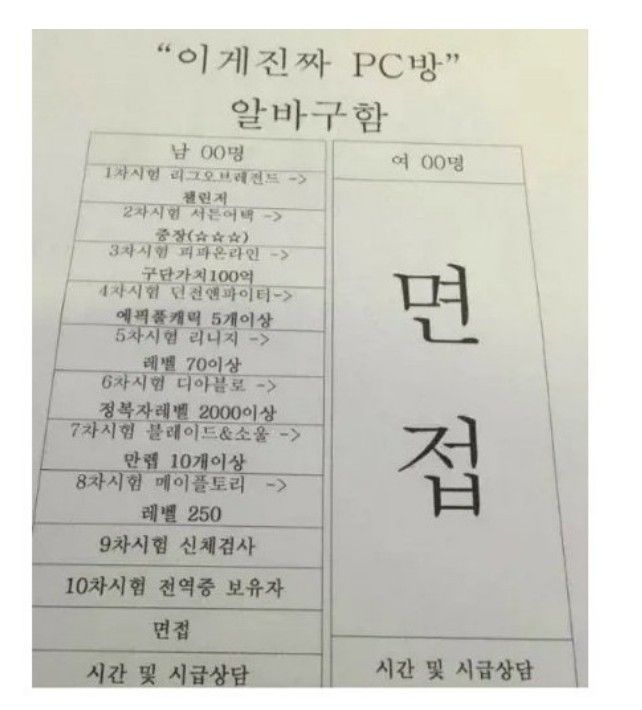 “이게진짜 PC방”
알바구함
남 00명
1차시험 리그오브레전드 ->
챌린저
2차시험 서든어택 ->
중장(☆☆☆)
3차시험 피파온라인 ->
구단가치100억
4차시험 던전앤파이터->
에픽풀캐릭 5개이상
5차시험 리니지 ->
레벨 70이상
6차시험 디아블로 ->
정복자레벨 2000이상
7차시험 블레이드&소울 ->
만렙 10개이상
8차시험 메이플토리 ->
레벨 250
9차시험 신체검사
10차시험 전역증 보유자
면접
시간 및 시급상담
여 00명
면
접
시간 및 시급상담